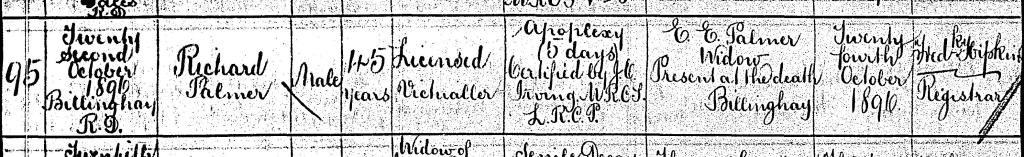 95
Twenty
Second
October
1896
Billinghay
R.D.
Richard
Palmer
Male
45
years
Licensed
Victualler
Apoplexy
5 days
Certified by J.C.
Irving M.R.C.S.
L.R.C.P.
E. E. Palmer
Widow
Present at the death
Billinghay
Twenty
fourth
October
1896.
Registrar
Widow of